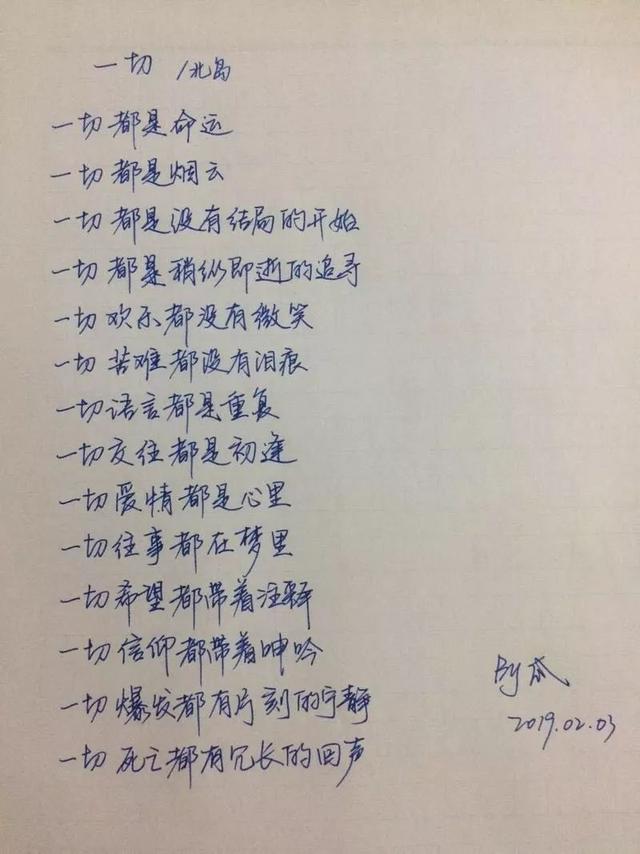 一切 /北岛
一切都是命运
一切都是烟云
一切都是没有结局的开始
一切都是稍纵即逝的追寻
一切欢乐都没有微笑
一切苦难都没有泪痕
一切语言都是重复
一切交往都是初逢
一切爱情都是心里
一切往事都在梦里
一切希望都带着注释
一切信仰都带着呻吟
一切爆发都有片刻的宁静
一切死亡都有冗长的回声
By
2019.02.03